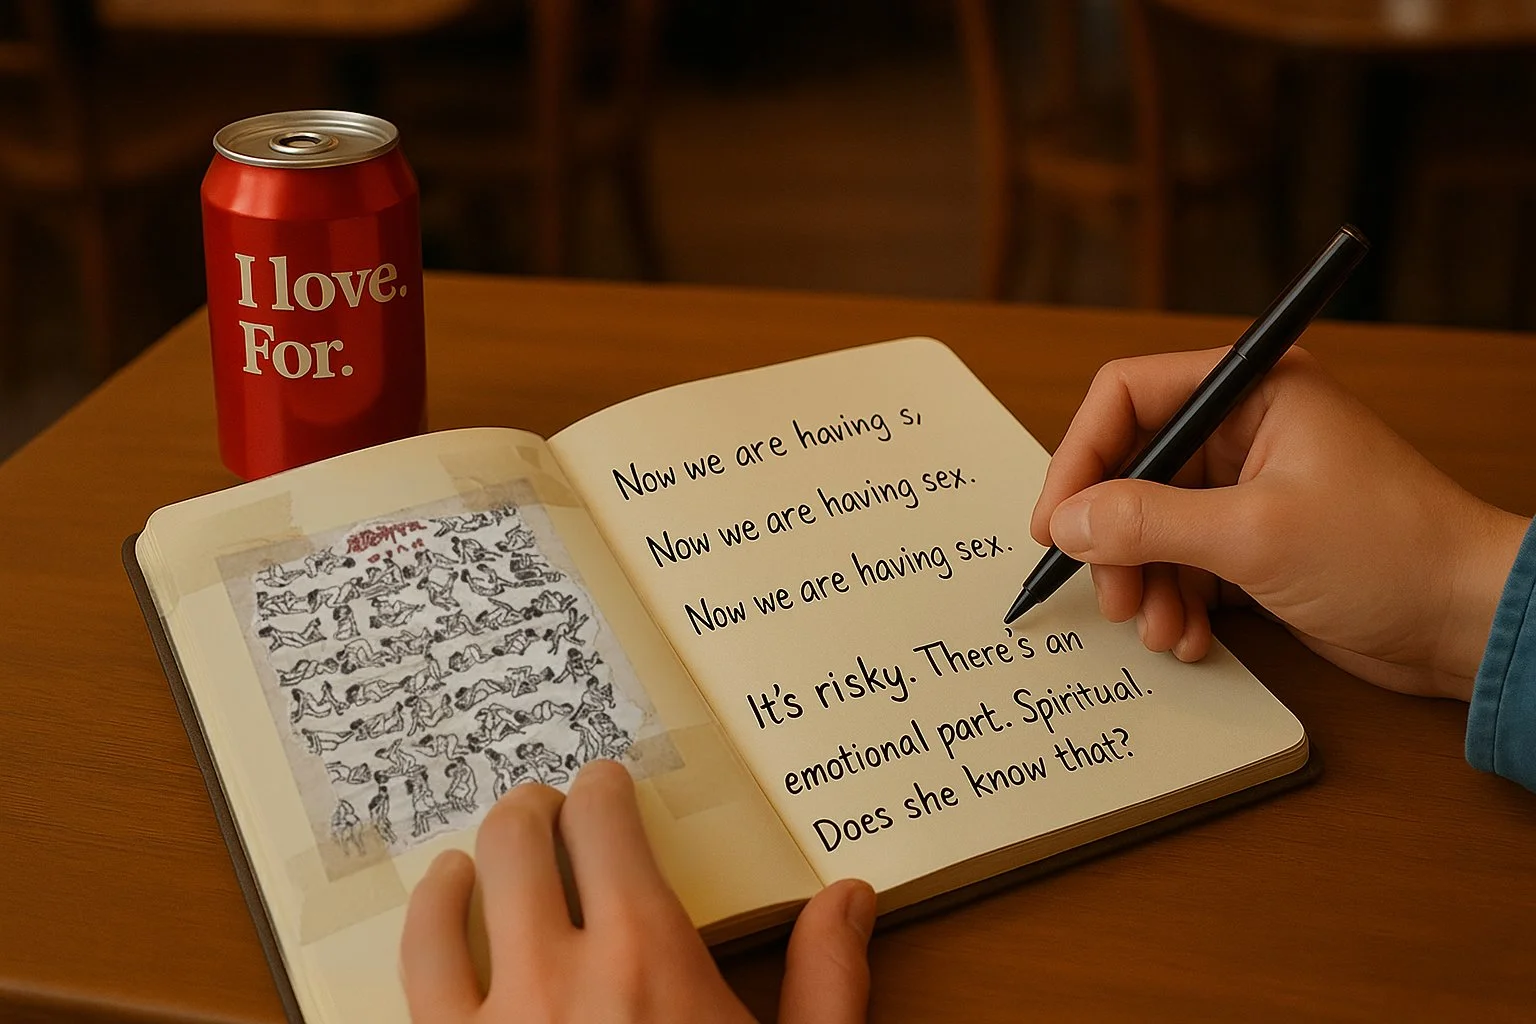 I love.
For.
Now we are having s,
Now we are having sex.
Now we are having sex.
It's risky. There's an
emotional part. Spiritual.
Does she know that?